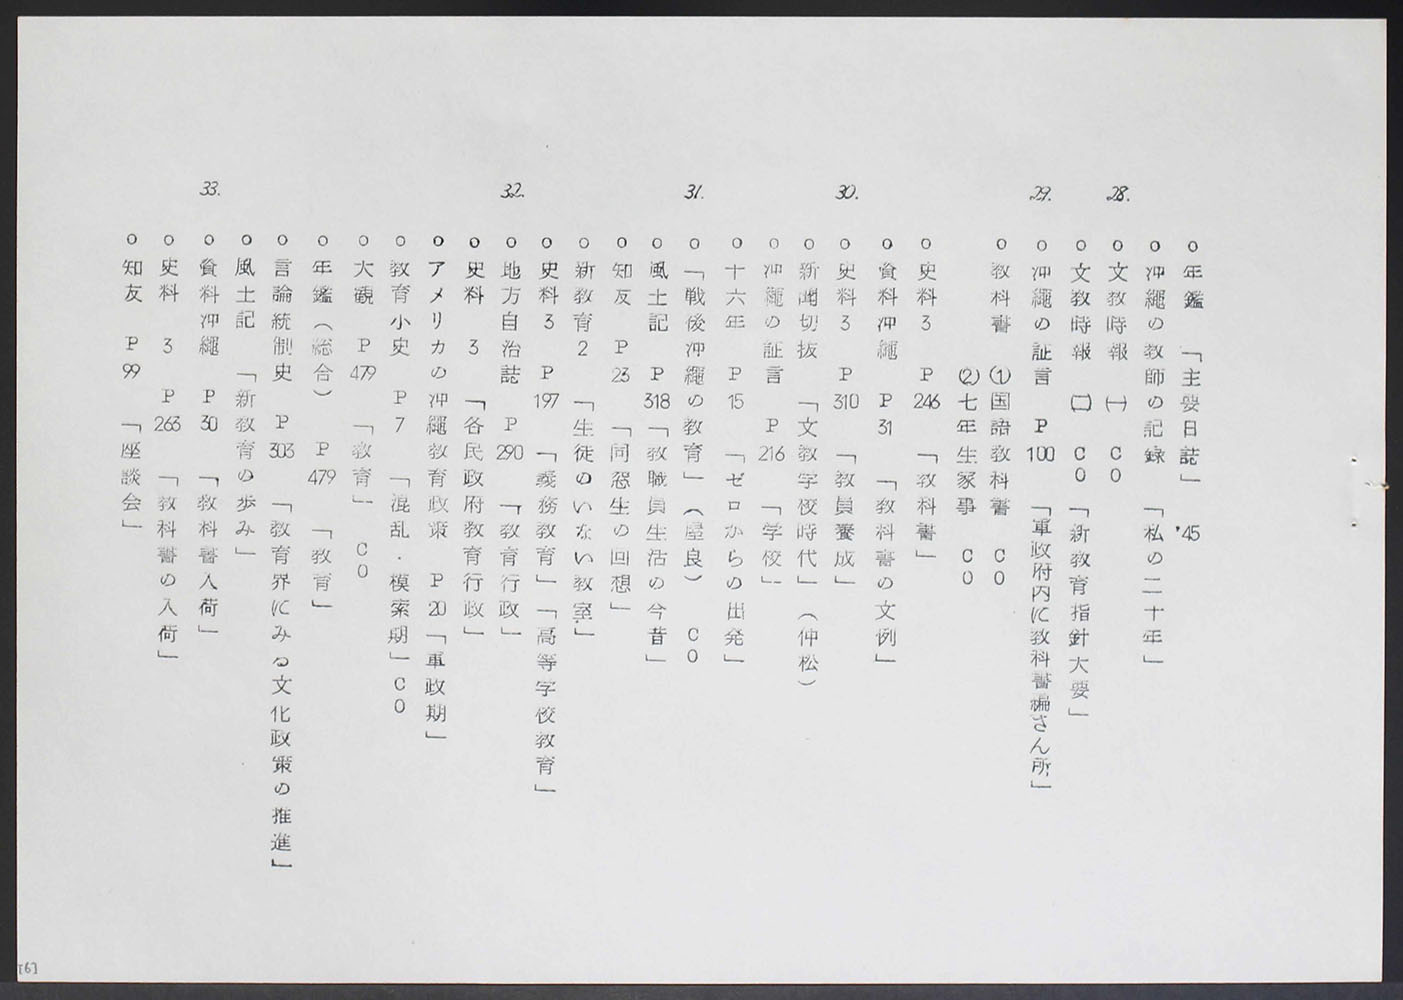 ○年鑑 「主要日誌」 '45
○沖縄の教師の記録 「私の二十年」
28.
○文教時報 (一) CO
○文教時報 (二) CO 「新教育指針大要」
29.
○沖縄の証言 P100 「軍政府内に教科書編さん所」
○教科書 (1)国語教科書 CO
(2)七年生家事 CO
○史料3 P246 「教科書」
○資料沖縄 P31 「教科書の文例」
30.
○史料3 P310 「教員養成」
○新聞切抜 「文教学校時代」(仲松)
○沖縄の証言 P216 「学校」
○十六年 P15 「ゼロからの出発」
31.
○「戦後沖縄の教育」(屋良) CO
○風土記 P318 「教職員生活の今昔」
○知友 P23 「同窓生の回想」
○新教育2 「生徒のいない教室」
○史料3 P197 「義務教育」「高等学校教育」
32.
○地方自治誌 P290 「教育行政」
○史料3 「各民政府教育行政」
○アメリカの沖縄教育政策 P20 「軍政期」
○教育小史 P7 「混乱・模索期」CO
○大観 P479 「教育」 CO
○年鑑(総合) P479 「教育」
○言論統制史 P303 「教育界にみる文化政策の推進」
○風土記 「新教育の歩み」
33.
○資料沖縄 P30 「教科書入荷」
○史料3 P263 「教科書の入荷」
○知友 P99 「座談会」
[6]